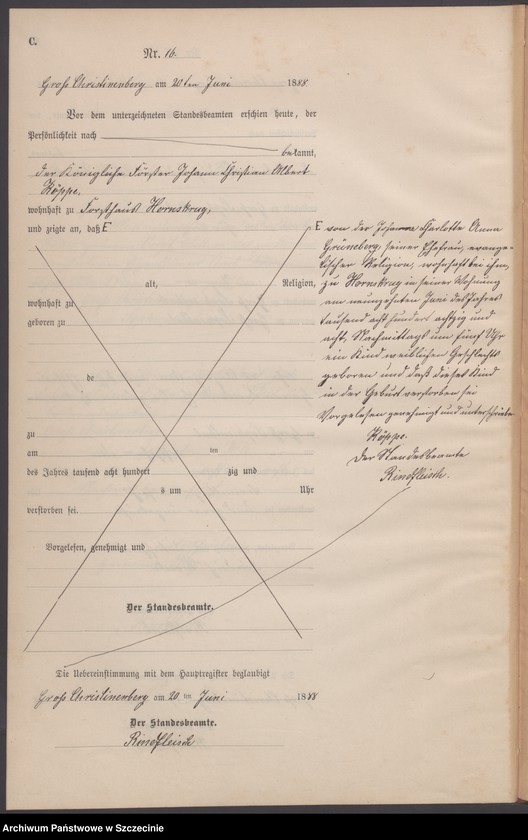 C.
Nr. 16.
Gross Christinenberg am 20ten Juni 1888
Vor dem unterzeichneten Standesbeamten erschien heute, der
Persönlichkeit nach
bekannt,
der Königliche Förster Johann Christian Albert
Köppe,
wohnhaft zu Forsthaus Hornskrug,
und zeigte an, daß E
alt, Religion,
wohnhaft zu
geboren zu
de
zu
am ten
des Jahres tausend acht hundert zig und
s um Uhr
verstorben sei.
Vorgelesen, genehmigt und
Der Standesbeamte.
E von der Johanna Charlotte Anna
Grüneberg, seiner Ehefrau, evange-
lischer Religion, wohnhaft bei ihm,
zu Hornskrug in seiner Wohnung
am neunzehnten Juni des Jahres
tausend acht hundert achtzig und
acht, Nachmittags um fünf Uhr
ein Kind weiblichen Geschlechts
geboren und daß dieses Kind
in der Geburt verstorben sei
Vorgelesen genehmigt und unterschrieben
Köppe.
Der Standesbeamte
Rindfleisch.
Die Uebereinstimmung mit dem Hauptregister beglaubigt
Gross Christinenberg am 20 ten Juni 1888
Der Standesbeamte.
Rindfleisch
Archiwum Państwowe w Szczecinie